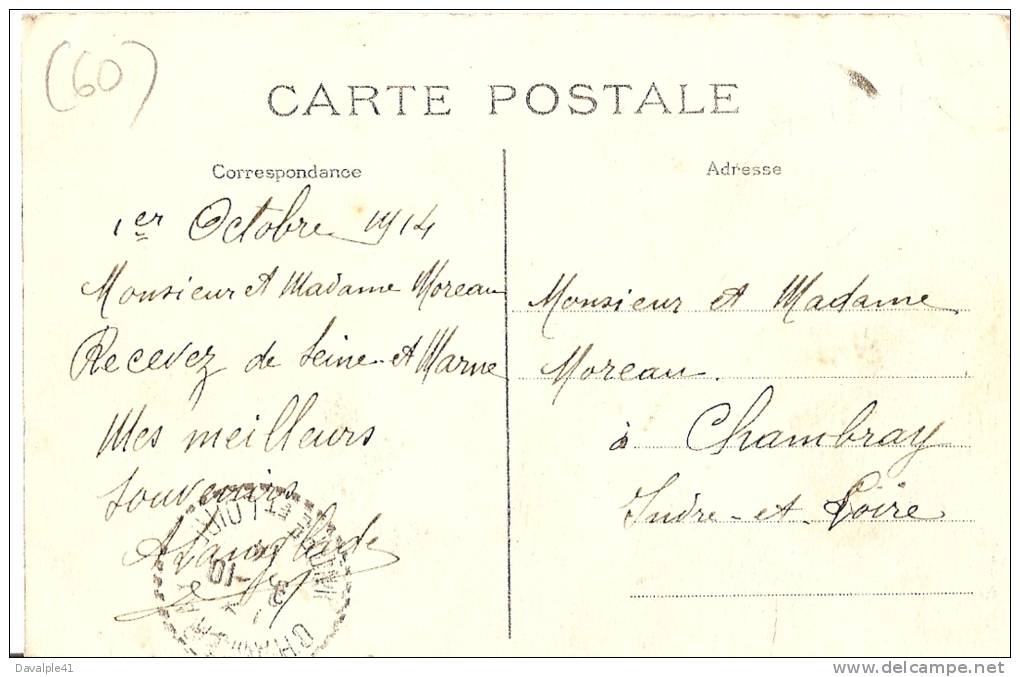 (60)
CARTE POSTALE
Correspondance
1er Octobre 1914
Monsieur et Madame Moreau
Recevez de Seine-et-Marne
Mes meilleurs
souvenirs
Adresse
Monsieur et Madame
Moreau.
à Chambray
Indre-et-Loire
INDRE ET LOIRE
3 -10
Davalple41
delcampe.net